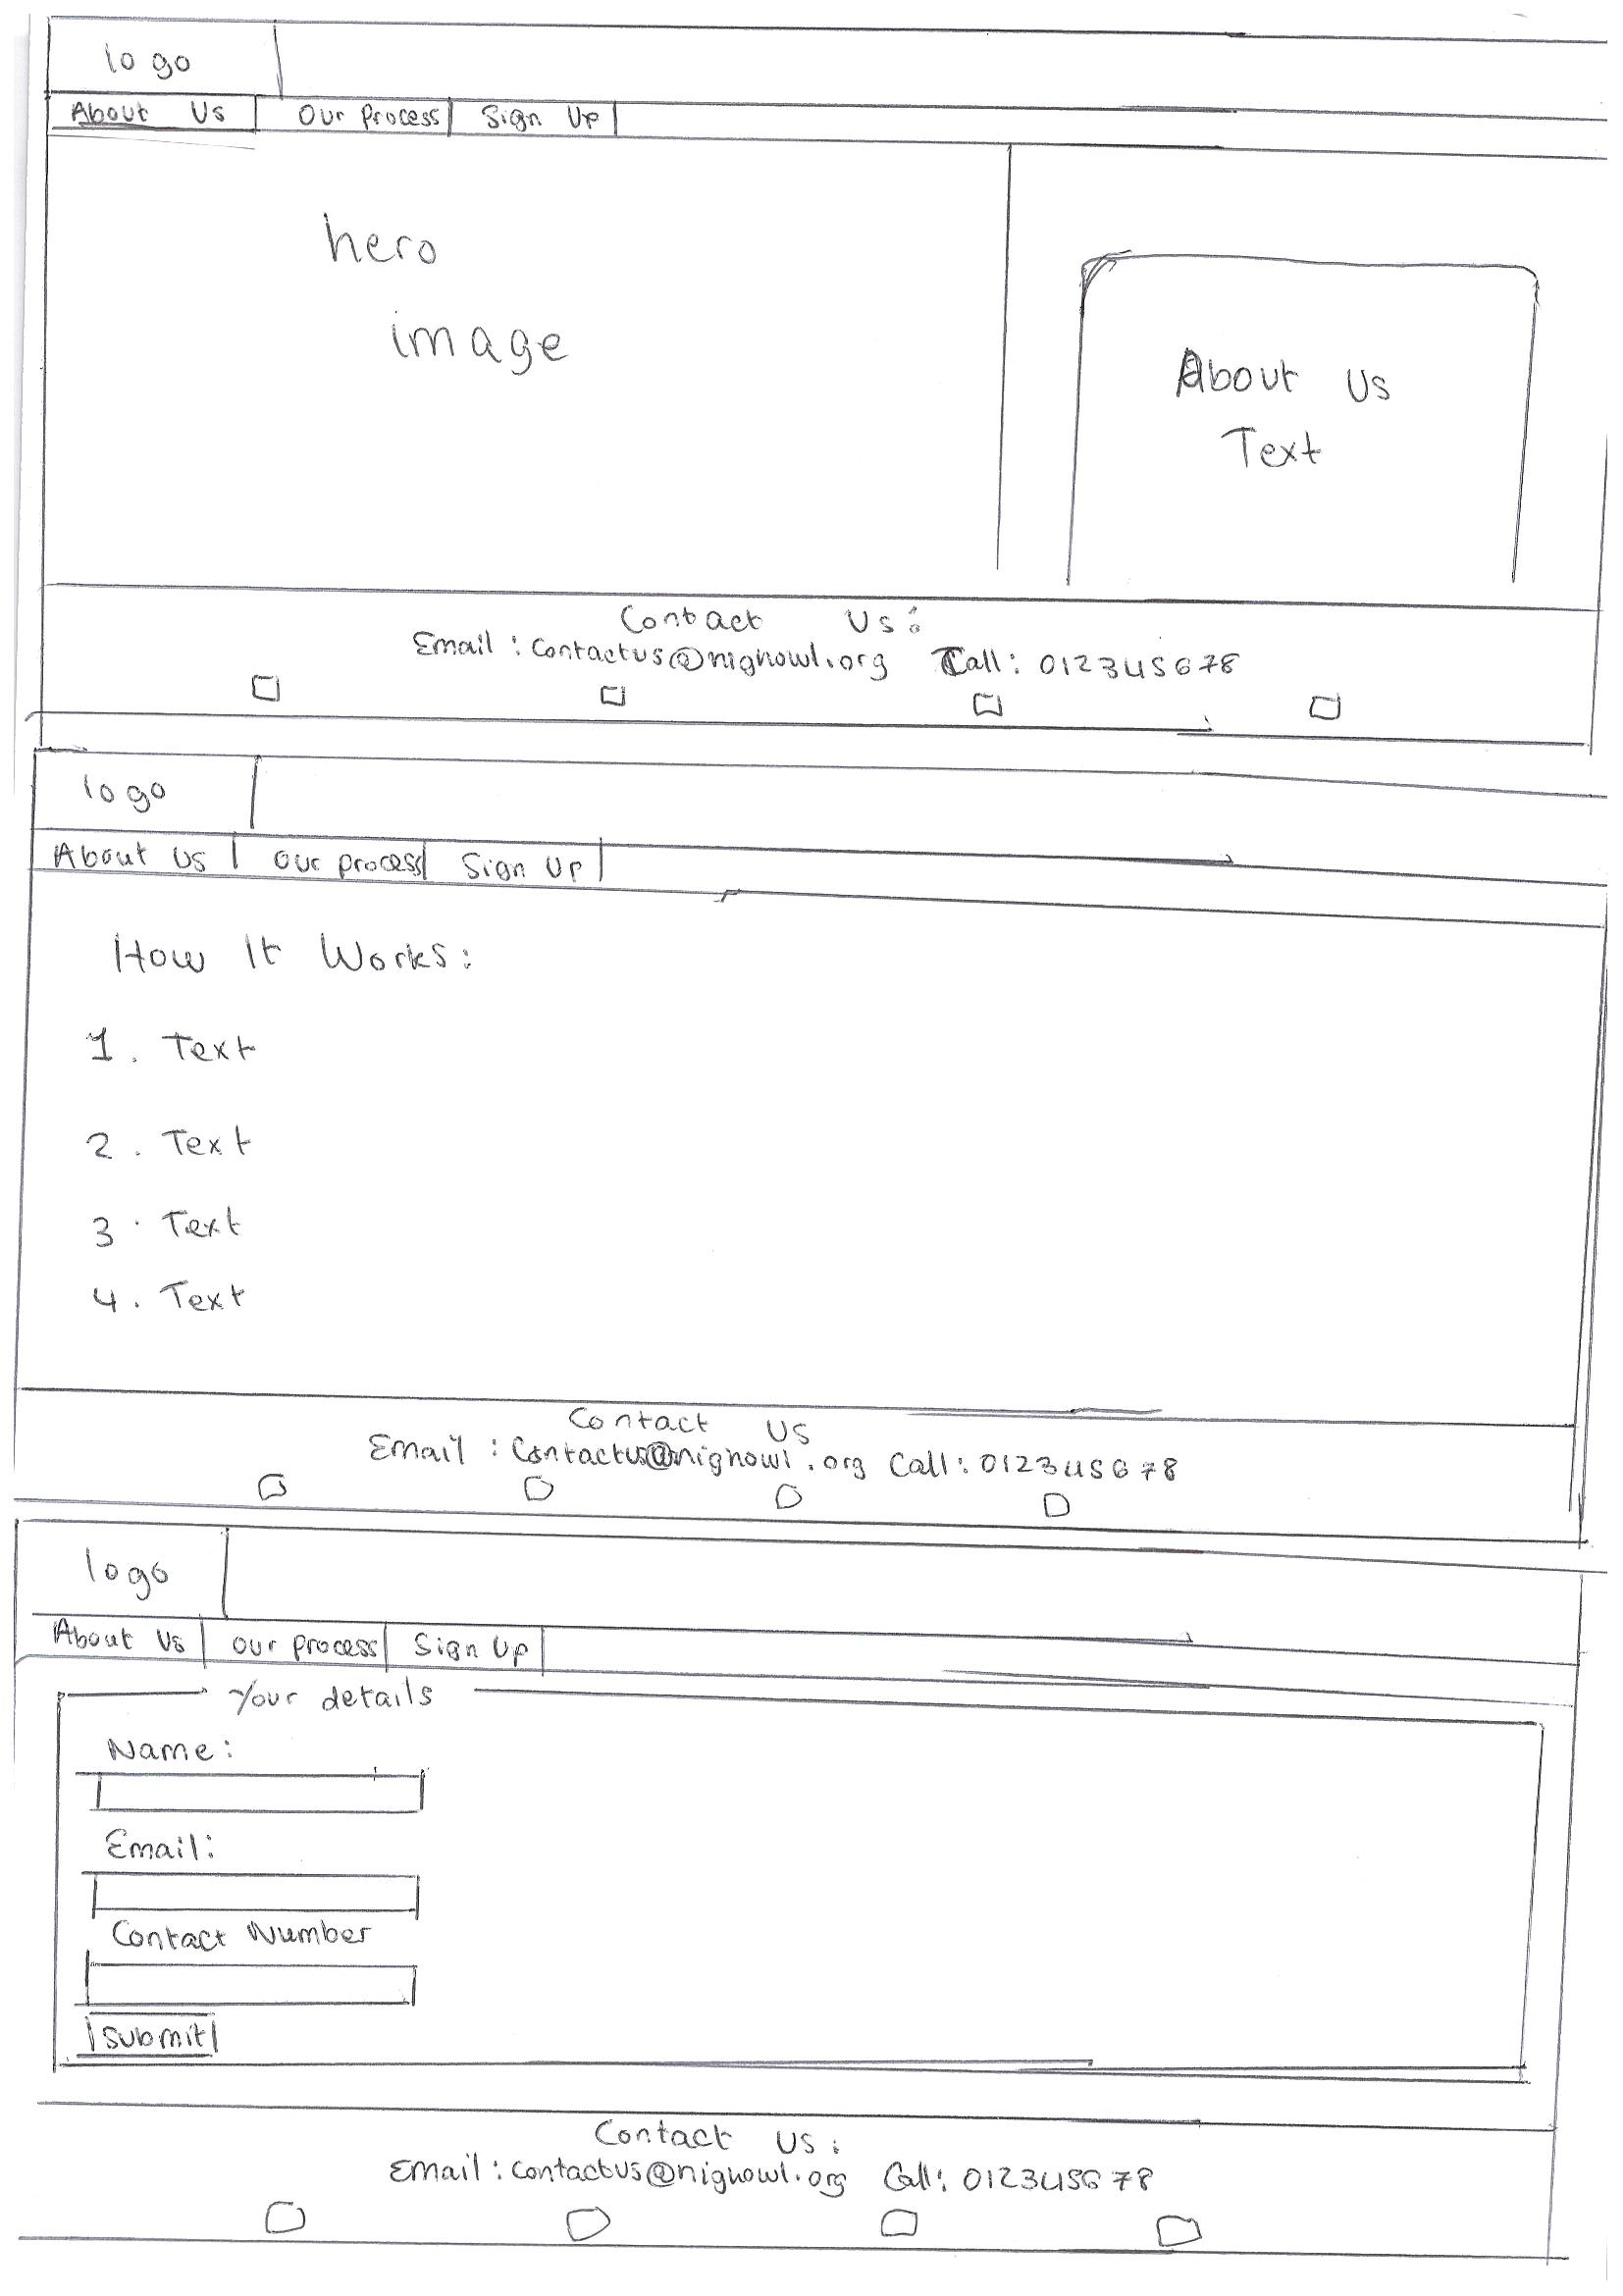 logo
About Us Our Process Sign Up
hero
image
About Us
Text
Contact Us:
Email: Contactus@nignowl.org Call: 012345678
logo
About Us Our process Sign Up
How It Works:
1. Text
2. Text
3. Text
4. Text
Contact Us
Email: Contactus@nignowl.org Call: 012345678
logo
About Us our process Sign Up
Your details
Name:
Email:
Contact Number
submit
Contact Us:
Email: contactus@nignowl.org Call: 012345678